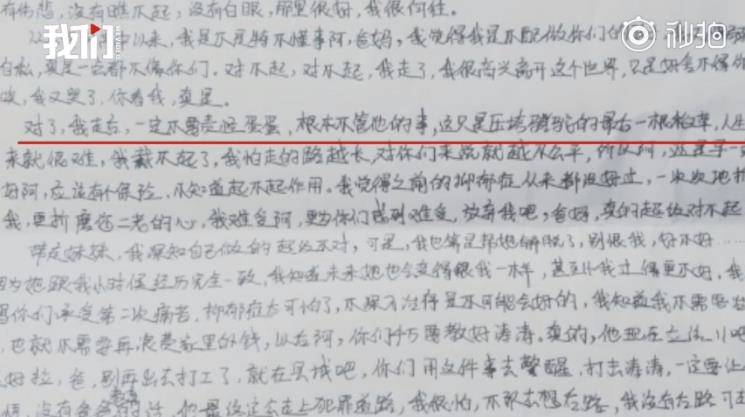 有伤悲，没有瞧不起，没有白眼，那里很好，我很向往。
我们
秒拍
以来，我是不是特不懂事阿，爸妈，我觉得我是不配做你们的
都不像你们。对不起，对不起，我走了，我很高兴离开这个世界，只是好舍不得你
我又哭了，你看我，真是。
对了，我走后，一定不需责怪蛋蛋，根本不管他的事，这只是压垮骆驼的最后一根稻草，人生
来就很难，我戴不起了，我怕走的路越长，对你们来说就越不公平，所以阿，
好阿，应该有个保险，不知道起不起作用。我觉得之前的抑郁症从来都没好过，一次次地折
我，更折磨您二老的心，我难受阿，更为你们感到难受，放弃我吧，爸妈，真的超级对不起
带走妹妹，我深知自己做的超级不对，可是，我也算是帮她解脱了，别恨我，好不好……
因为她跟我小时候经历完全一致，我知道未来她也会变得跟我一样，甚至比我过得更不好，我
你们承受第二次痛苦，抑郁症太可怕了，不是不可能会好的，我知道我不需要
也就不需要再浪费家里的钱，以后阿，你们巧要教好涛涛，真的，他现在
好拉，爸，别再出去打工了，就在县城吧，你们用这件事去警醒，打击涛涛，一定要让
没有爸爸的话，他最终这会走上犯罪道路，我很怕，不敢去想后路，我没有后路可